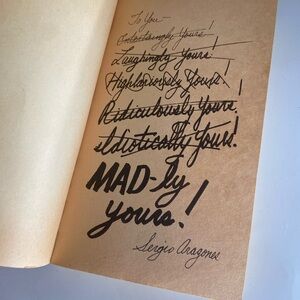 To You—
Yours!
Laughingly Yours!
Highlariously Yours!
Ridiculously Yours!
Idiotically Yours!
MAD-ly
yours!
Sergio Aragones